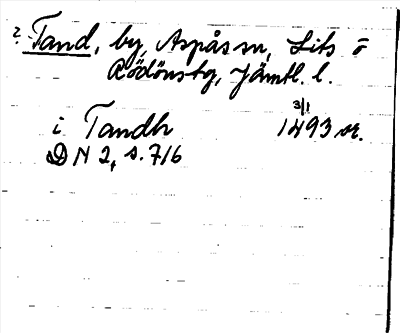 ? Tand, by, Aspås sn, Lits o
Rödöns tg, Jämtl. l.
3/1
i Tandh 1493 or.
DN 2, s. 716